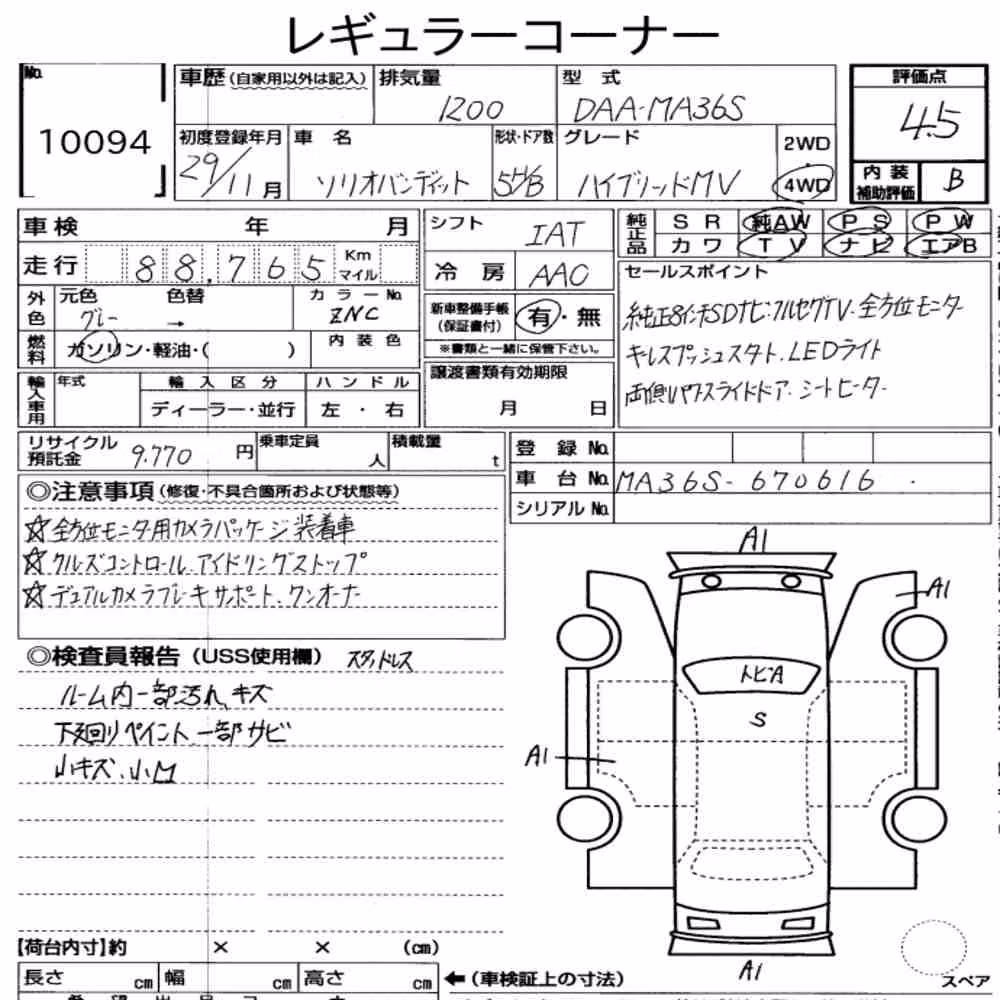 レギュラーコーナー
No. 10094
車歴 (自家用以外は記入) 排気量 1200 型式 DAA-MA36S
初度登録年月 29/11月 車名 ソリオバンディット 形状・ドア数 5H/B グレード ハイブリッドMV 2WD 4WD
評価点 4.5
内装補助評価 B
車検 年 月
走行 88,765 Km マイル
外色 元色 グレー 色替 → カラーNo. ZNC
燃料 ガソリン・軽油・( ) 内装色
輸入車用 年式 輸入区分 ハンドル
ディーラー・並行 左・右
シフト IAT
冷房 AAC
新車整備手帳 (保証書付) 有・無
※書類と一緒に保管下さい。
譲渡書類有効期限
月 日
純正品 SR 純AW PS PW
カワ TV ナビ エアB
セールスポイント
純正8インチSDナビ・フルセグTV・全方位モニター
キーレスプッシュスタート.LEDライト
両側パワースライドドア.シートヒーター
リサイクル預託金 9.770 円 乗車定員 人 積載量 t
登録No.
車台No. MA36S-670616
シリアルNo.
◎注意事項 (修復・不具合箇所および状態等)
☆全方位モニター用カメラパッケージ装着車
☆クルーズコントロール.アイドリングストップ
☆デュアルカメラブレーキサポート.ワンオーナー
◎検査員報告 (USS使用欄) スタッドレス
ルーム内一部汚れ、キズ
下廻りペイント、一部サビ
小キズ、小凹
A1
A1
トビA
S
A1
A1
【荷台内寸】約 × × (cm)
長さ cm 幅 cm 高さ cm
←(車検証上の寸法)
スペア